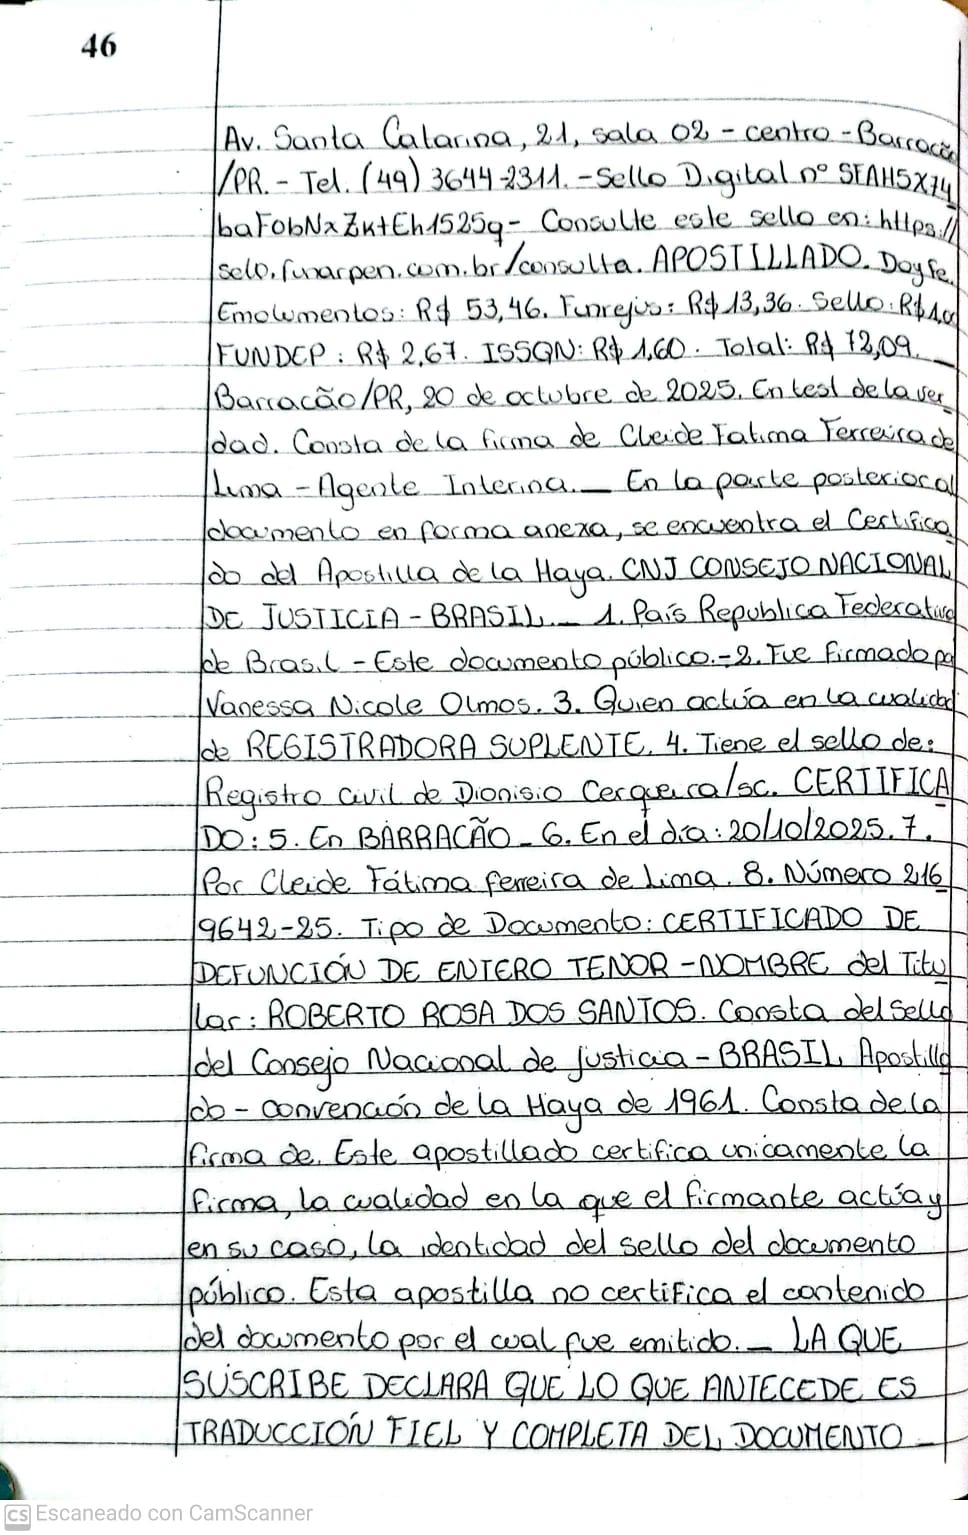 46
Av. Santa Catarina, 21, sala 02 - centro - Barracão
/PR. - Tel. (49) 3644-2311. - Sello Digital nº SFAH5X74
baFobNxZktEh1525q - Consulte este sello en: https://
selo.funarpen.com.br/consulta. APOSTILLADO. Doy fe.
Emolumentos: R$ 53,46. Funrejus: R$ 13,36. Sello: R$ 1,00
FUNDEP: R$ 2,67. ISSQN: R$ 1,60. Total: R$ 72,09. _
Barracão/PR, 20 de octubre de 2025. En test de la ver_
dad. Consta de la firma de Cleide Fatima Ferreira de
Lima - Agente Interina. _ En la parte posterior al
documento en forma anexa, se encuentra el Certifica_
do del Apostilla de la Haya. CNJ CONSEJO NACIONAL
DE JUSTICIA - BRASIL. _ 1. País Republica Federativa
de Brasil - Este documento público. - 2. Fue firmado por
Vanessa Nicole Olmos. 3. Quien actúa en la cualidad
de REGISTRADORA SUPLENTE. 4. Tiene el sello de:
Registro civil de Dionisio Cerqueira/sc. CERTIFICA
DO: 5. En BARRACÃO _ 6. En el día: 20/10/2025. 7.
Por Cleide Fátima ferreira de Lima. 8. Número 216
9642-25. Tipo de Documento: CERTIFICADO DE
DEFUNCIÓN DE ENTERO TENOR - NOMBRE del Titu
lar: ROBERTO ROSA DOS SANTOS. Consta del Sello
del Consejo Nacional de justicia - BRASIL Apostilla
do - convención de la Haya de 1961. Consta de la
firma de. Este apostillado certifica unicamente la
firma, la cualidad en la que el firmante actúa y
en su caso, la identidad del sello del documento
público. Esta apostilla no certifica el contenido
del documento por el cual fue emitido. _ LA QUE
SUSCRIBE DECLARA QUE LO QUE ANTECEDE ES
TRADUCCIÓN FIEL Y COMPLETA DEL DOCUMENTO _
CS Escaneado con CamScanner